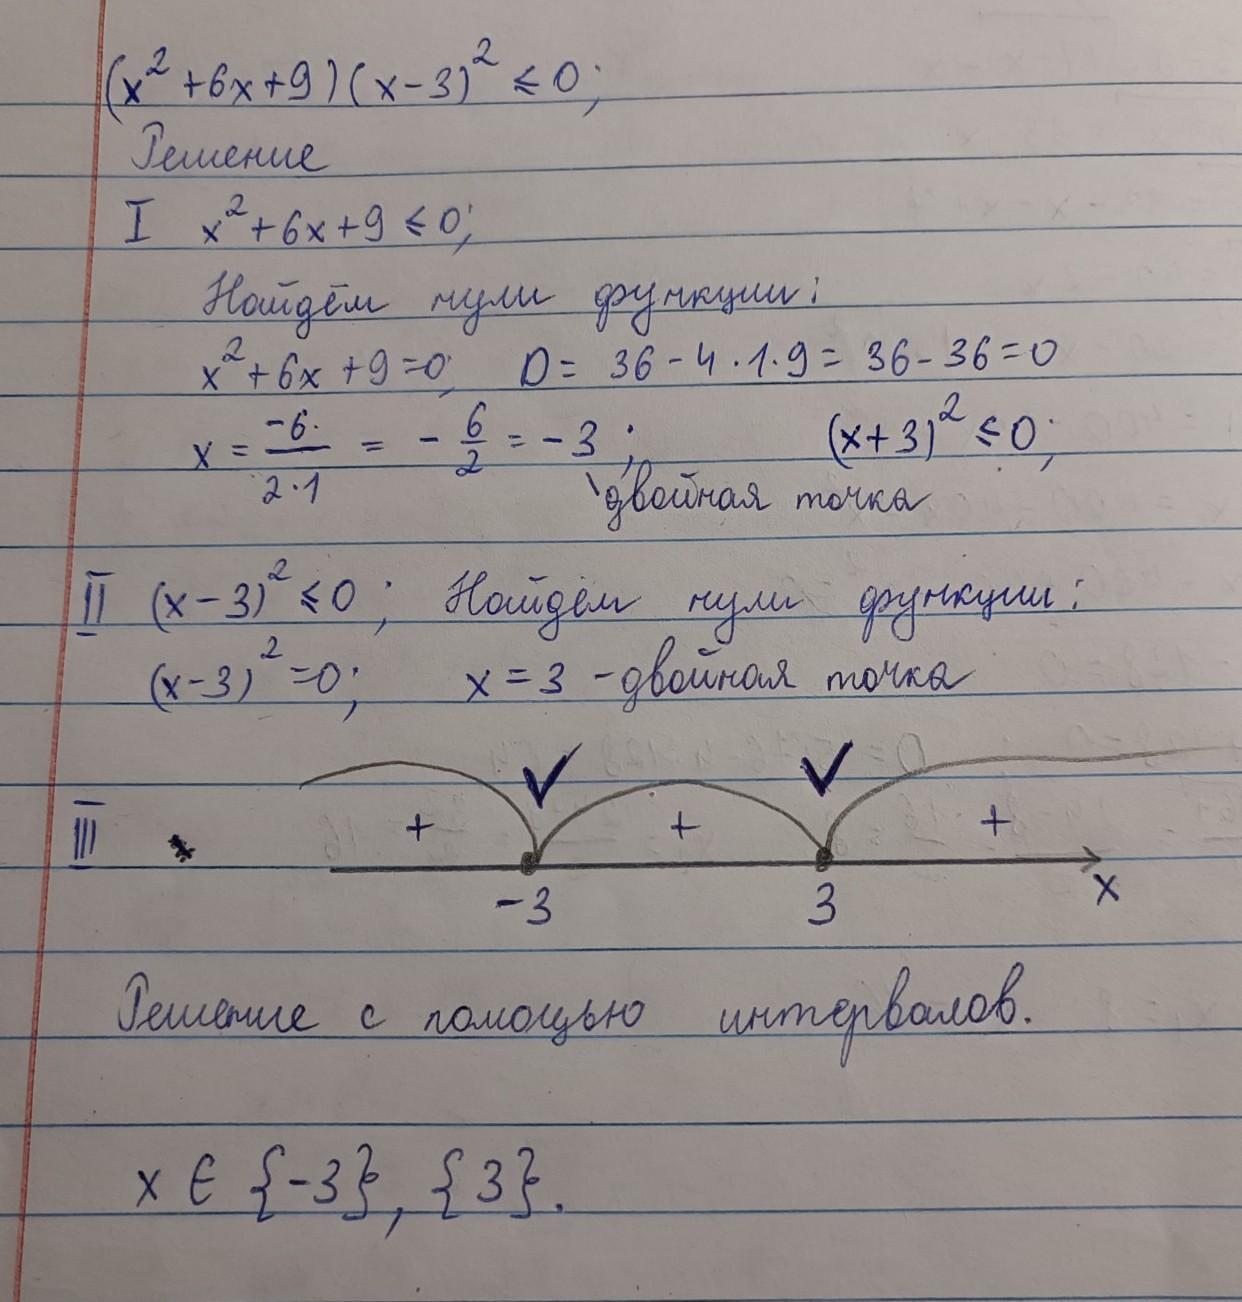 (x² + 6x + 9)(x - 3)² ≤ 0;
Решение
I x² + 6x + 9 ≤ 0;
Найдём нули функции:
x² + 6x + 9 = 0; D = 36 - 4 · 1 · 9 = 36 - 36 = 0
x = -6/2·1 = - 6/2 = -3; (x+3)² ≤ 0;
двойная точка
II (x - 3)² ≤ 0; Найдём нули функции:
(x - 3)² = 0; x = 3 - двойная точка
III + + +
-3 3 x
Решение с помощью интервалов.
x ∈ {-3}, {3}.